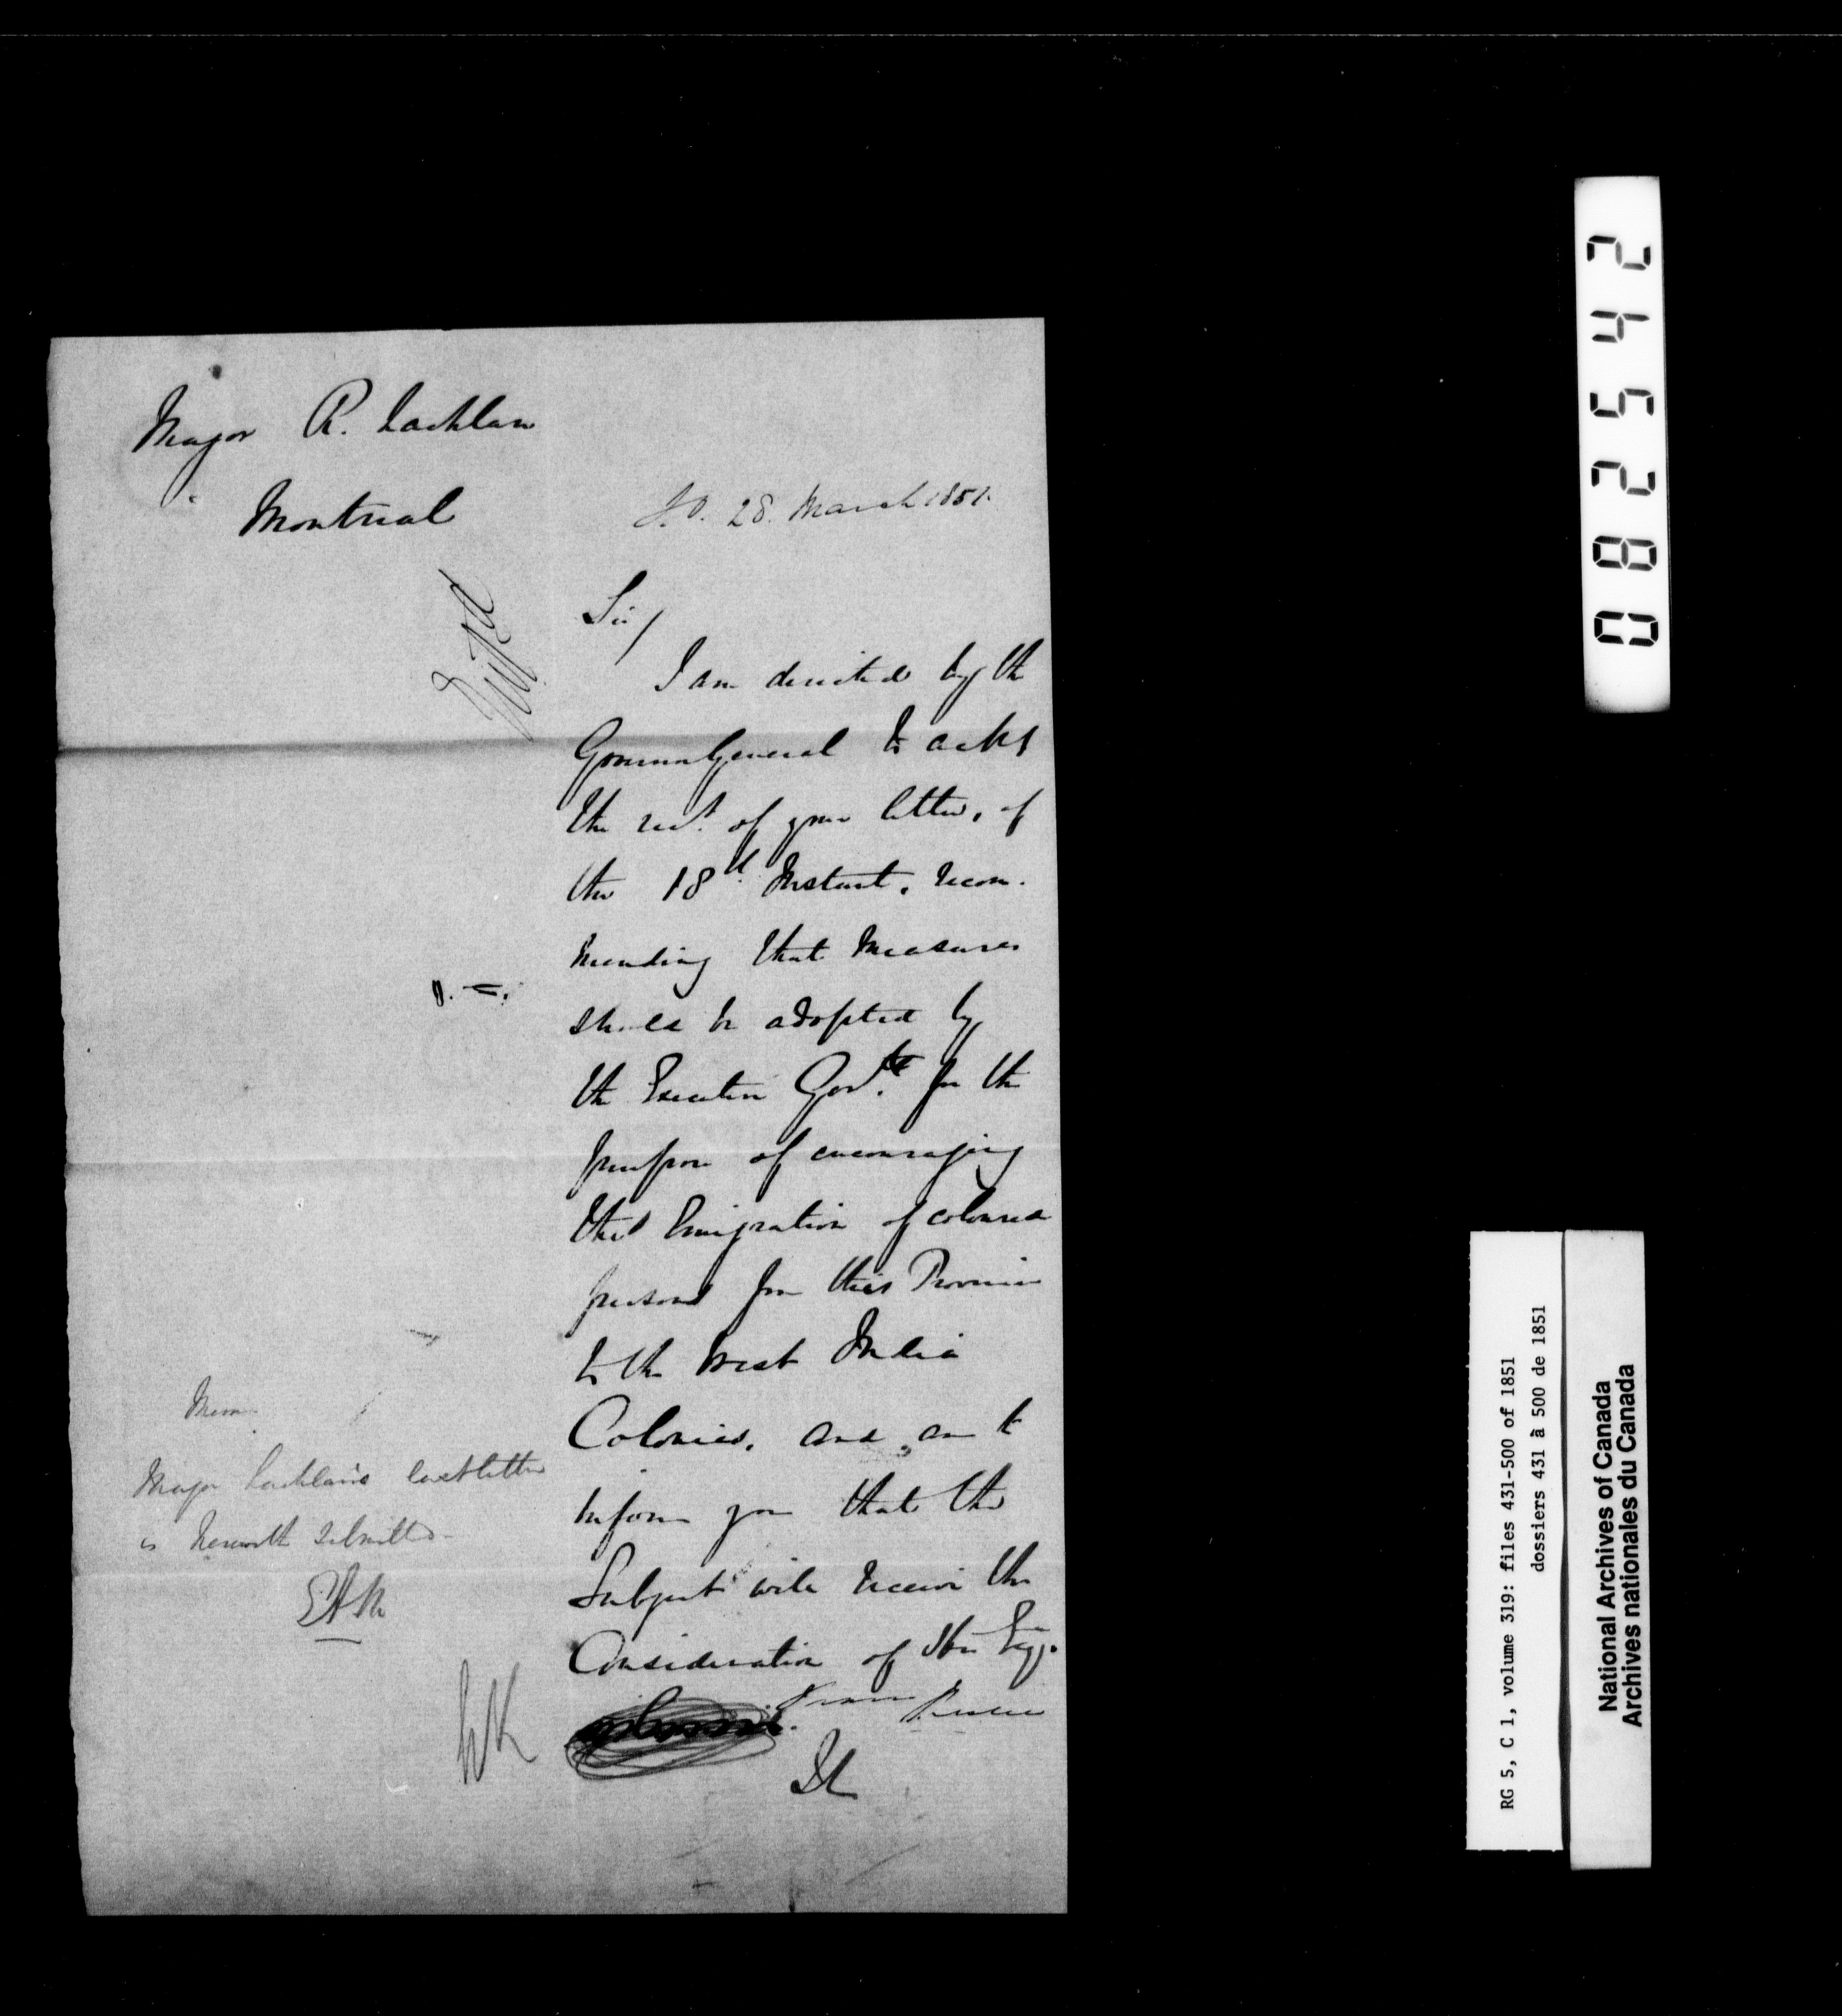 Major R. Lachlan
Montreal
28. March 1851.
Sir/
I am directed by the
Governor General to ackt
the rect. of your letter, of
the 18th Instant, recom-
mending that Measures
should be adopted by
the Executive Govt. for the
purpose of encouraging
the Emigration of coloured
persons from this Province
to the West India
Colonies. and am to
inform you that the
Subject will receive the
Consideration of His Exy.
in Council
Mem
Major Lachlan's last letter
is herewith submitted
EAM
082542
RG 5, C 1, volume 319: files 431-500 of 1851
dossiers 431 à 500 de 1851
National Archives of Canada
Archives nationales du Canada